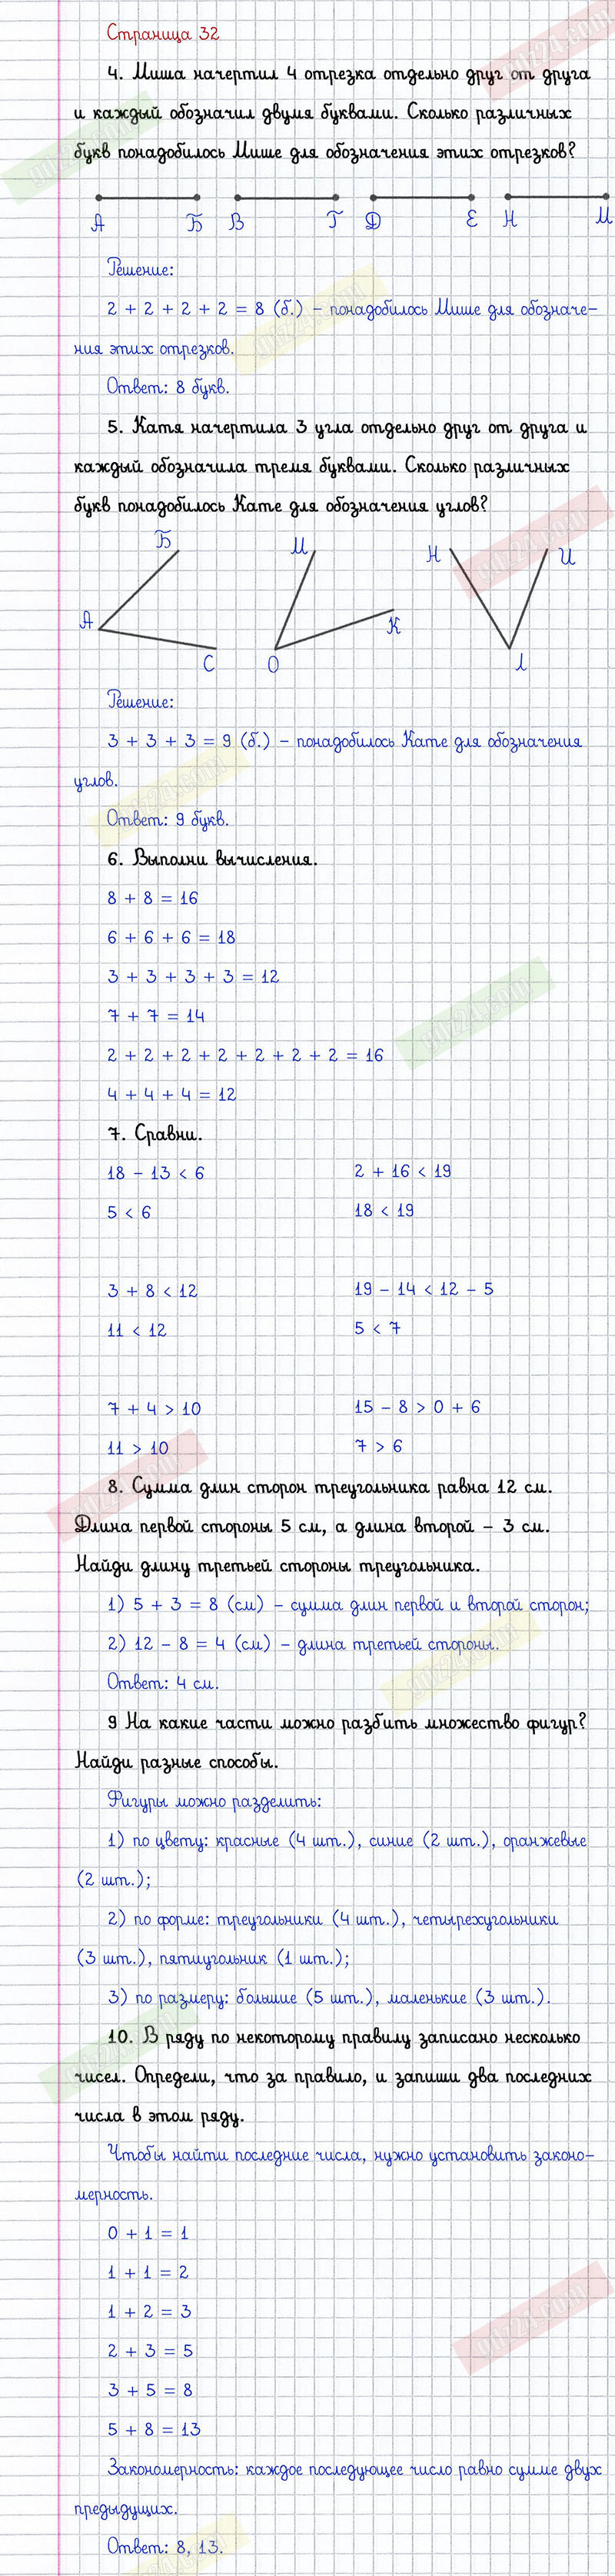 Страница 32
4. Миша начертил 4 отрезка отдельно друг от друга
и каждый обозначил двумя буквами. Сколько различных
букв понадобилось Мише для обозначения этих отрезков?
А Б В Г Д Е Н М
Решение:
2 + 2 + 2 + 2 = 8 (б.) – понадобилось Мише для обозначе-
ния этих отрезков.
Ответ: 8 букв.
5. Катя начертила 3 угла отдельно друг от друга и
каждый обозначила тремя буквами. Сколько различных
букв понадобилось Кате для обозначения углов?
Б М Н И
А К
С О Л
Решение:
3 + 3 + 3 = 9 (б.) – понадобилось Кате для обозначения
углов.
Ответ: 9 букв.
6. Выполни вычисления.
8 + 8 = 16
6 + 6 + 6 = 18
3 + 3 + 3 + 3 = 12
7 + 7 = 14
2 + 2 + 2 + 2 + 2 + 2 + 2 = 16
4 + 4 + 4 = 12
7. Сравни.
18 – 13 < 6 2 + 16 < 19
5 < 6 18 < 19
3 + 8 < 12 19 – 14 < 12 – 5
11 < 12 5 < 7
7 + 4 > 10 15 – 8 > 0 + 6
11 > 10 7 > 6
8. Сумма длин сторон треугольника равна 12 см.
Длина первой стороны 5 см, а длина второй – 3 см.
Найди длину третьей стороны треугольника.
1) 5 + 3 = 8 (см) – сумма длин первой и второй сторон;
2) 12 – 8 = 4 (см) – длина третьей стороны.
Ответ: 4 см.
9 На какие части можно разбить множество фигур?
Найди разные способы.
Фигуры можно разделить:
1) по цвету: красные (4 шт.), синие (2 шт.), оранжевые
(2 шт.);
2) по форме: треугольники (4 шт.), четырехугольники
(3 шт.), пятиугольник (1 шт.);
3) по размеру: большие (5 шт.), маленькие (3 шт.).
10. В ряду по некоторому правилу записано несколько
чисел. Определи, что за правило, и запиши два последних
числа в этом ряду.
Чтобы найти последние числа, нужно установить законо-
мерность.
0 + 1 = 1
1 + 1 = 2
1 + 2 = 3
2 + 3 = 5
3 + 5 = 8
5 + 8 = 13
Закономерность: каждое последующее число равно сумме двух
предыдущих.
Ответ: 8, 13.